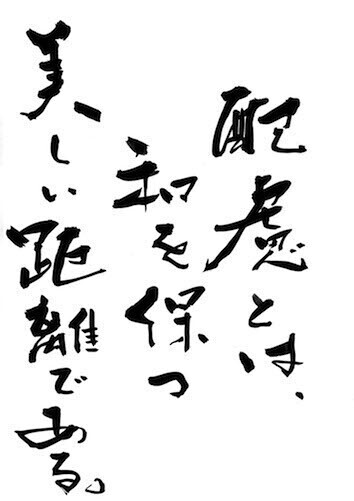 配慮とは、
和を保つ
美しい距離である。